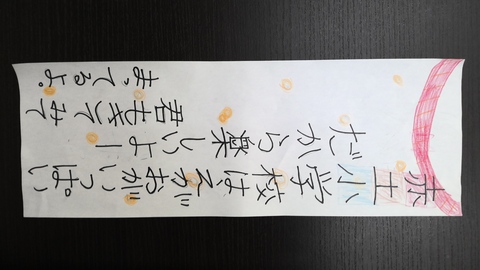 赤土小学校は、えがおがいっぱい。
だから楽しいよー
君もきてみて
まってるよ。